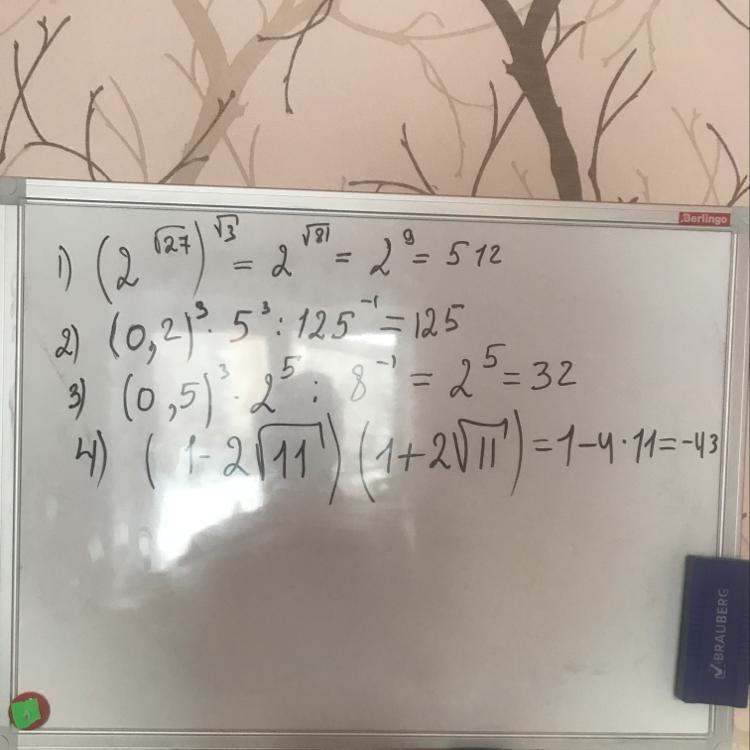 Berlingo
1) (2^√27)^√3 = 2^√81 = 2^9 = 512
2) (0,2)^3 · 5^3 : 125^-1 = 125
3) (0,5)^3 · 2^5 : 8^-1 = 2^5 = 32
4) (1-2√11)(1+2√11) = 1-4·11 = -43
BRAUBERG